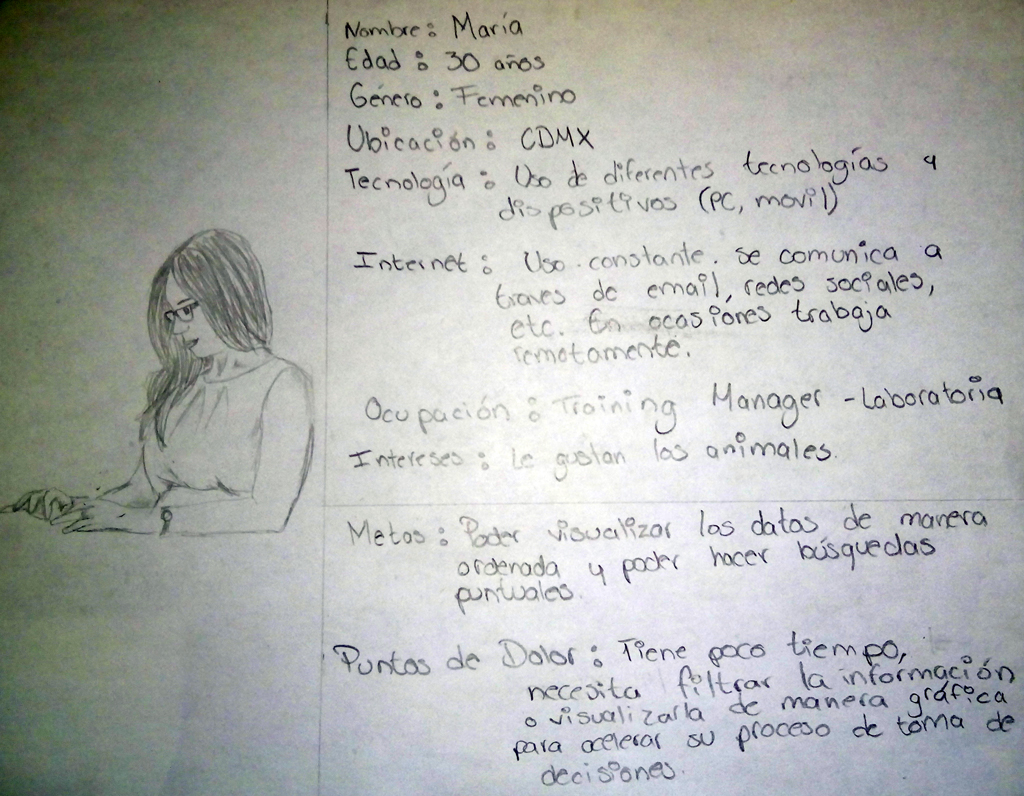 Nombre: María
Edad: 30 años
Género: Femenino
Ubicación: CDMX
Tecnología: Uso de diferentes tecnologías y
dispositivos (PC, movil)
Internet: Uso constante. Se comunica a
traves de email, redes sociales,
etc. En ocasiones trabaja
remotamente.
Ocupación: Training Manager - Laboratoria
Intereses: Le gustan los animales.
Metas: Poder visualizar los datos de manera
ordenada y poder hacer búsquedas
puntuales.
Puntos de Dolor: Tiene poco tiempo,
necesita filtrar la información
o visualizarla de manera gráfica
para acelerar su proceso de toma de
decisiones.